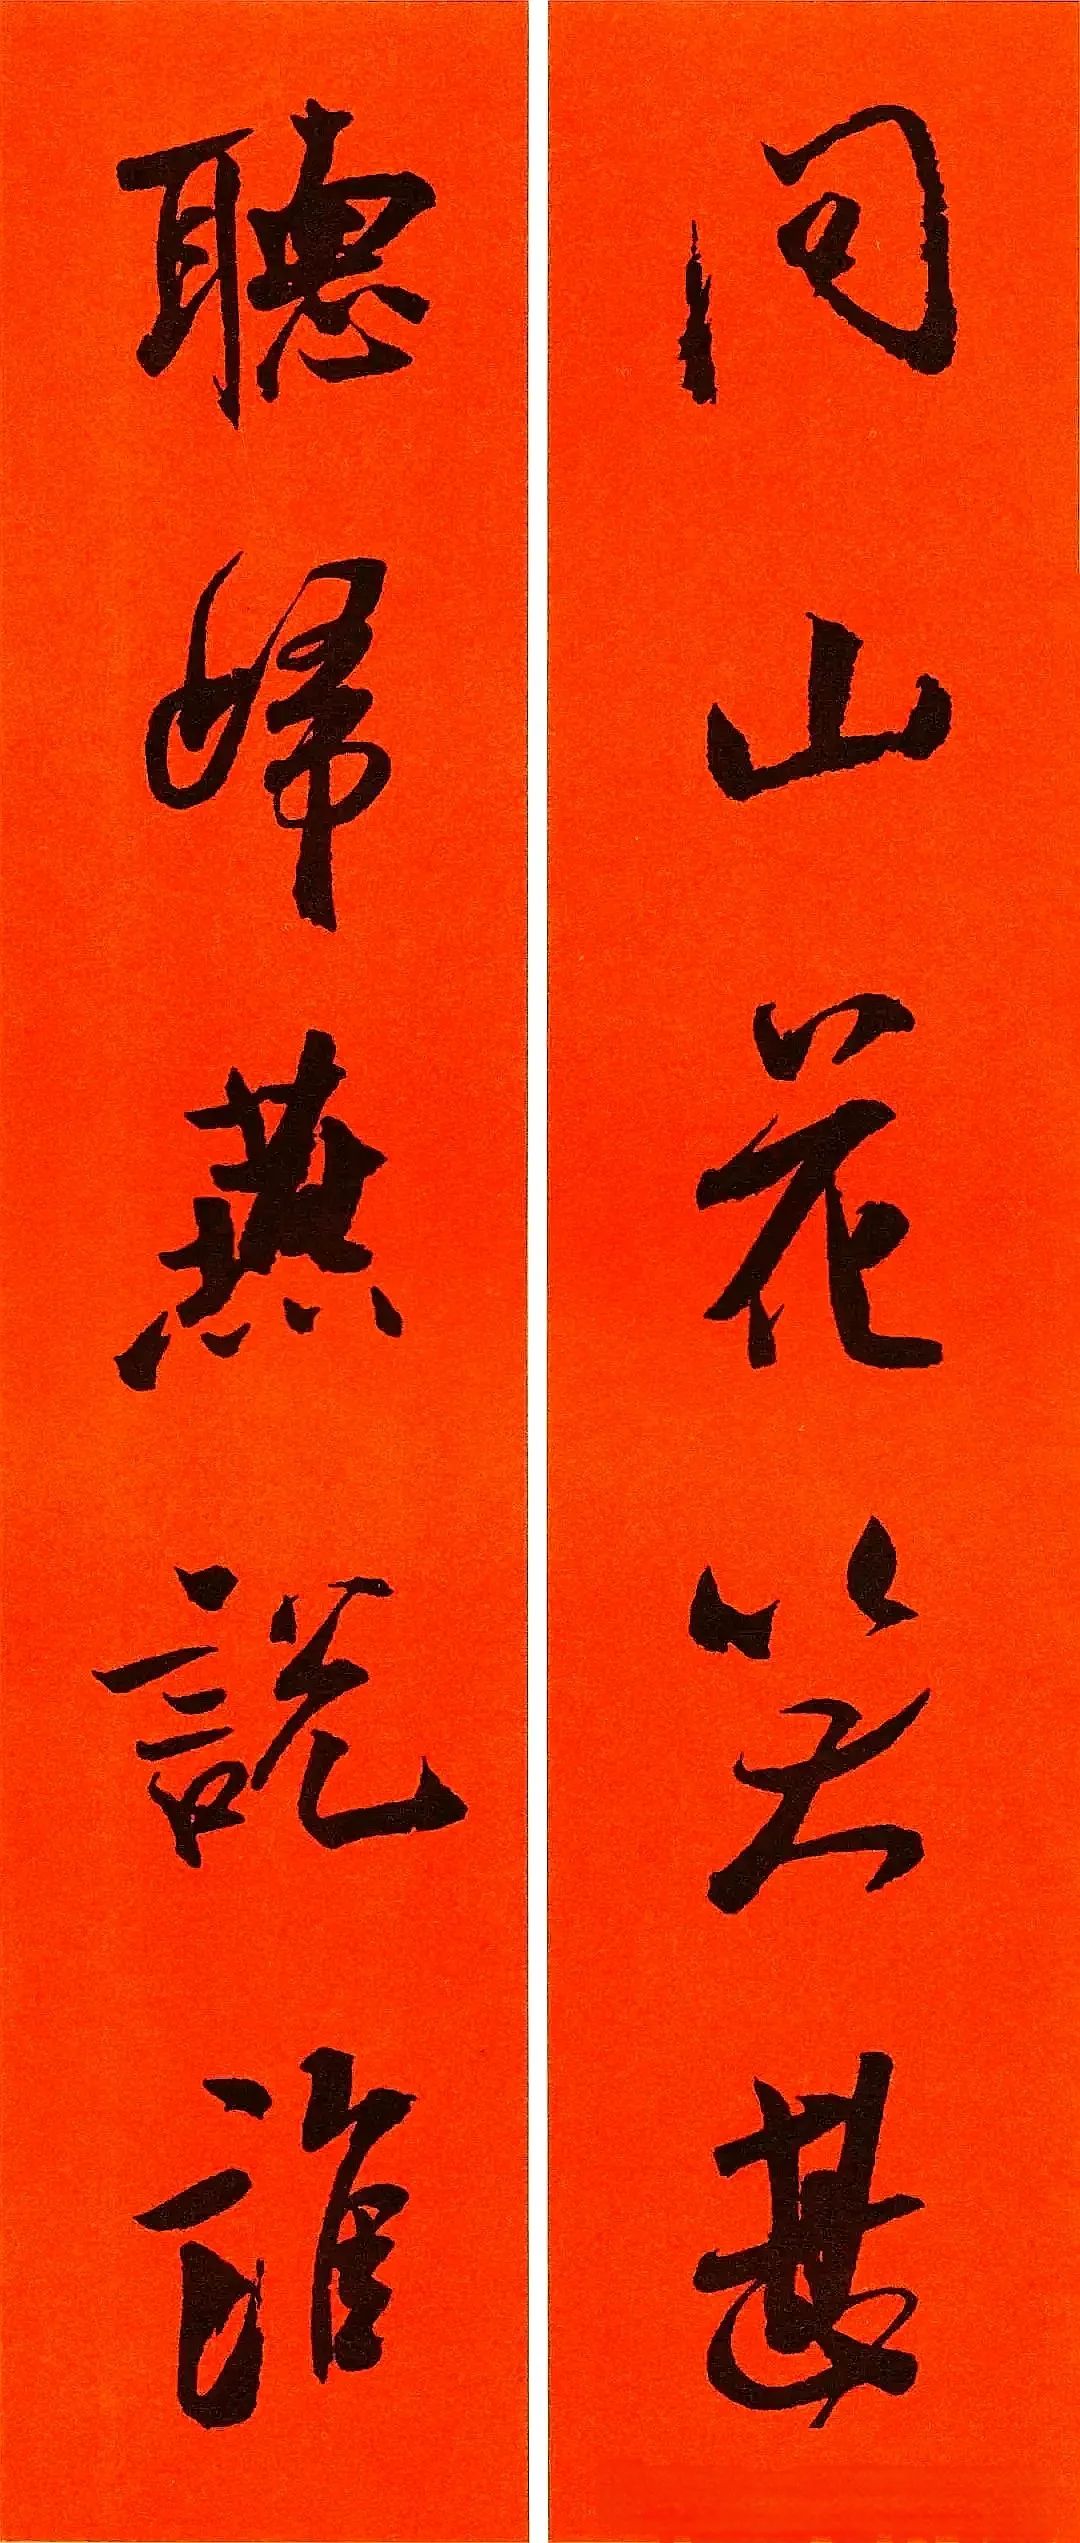 問山花笑甚
聽歸燕說誰